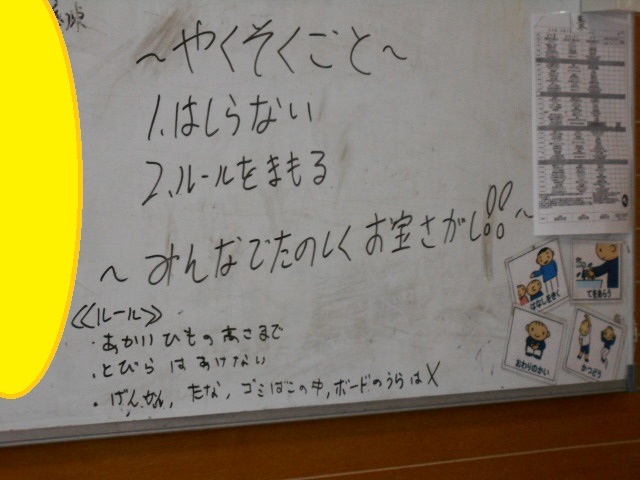 ～やくそくごと～
1.はしらない
2.ルールをまもる
～みんなでたのしくお宝さがし!!～
≪ルール≫
・あかいひものあさまで
・とびらはあけない
・げんかん,たな,ゴミばこの中,ボードのうらは✕
はなしをきく
てをあらう
おわりのかい
かつどう